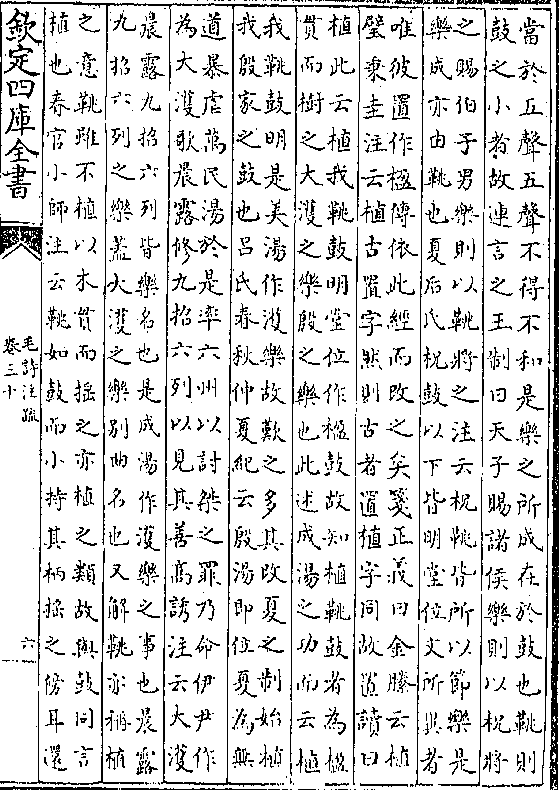 當於五聲五聲不得不和是樂之所成在於鼓也鞉則
鼓之小者故連言之王制曰天子賜諸侯樂則以柷將
之賜伯子男樂則以鞉將之注云柷鞉皆所以節樂是
樂成亦由鞉也夏后氏柷鼓以下皆明堂位文所異者
唯彼置作楹傳依此經而改之矣箋正義曰金縢云植
璧秉圭注云植古置字然則古者置植字同故置讀曰
植此云植我鞉鼓明堂位作楹鼓故知植鞉鼓者為楹
貫而樹之大濩之樂殷之樂也此述成湯之功而云植
我鞉鼓明是美湯作濩樂故歎之多其改夏之制始植
我殷家之鼓也呂氏春秋仲夏紀云殷湯即位夏為無
道暴虐萬民湯於是率六州以討桀之罪乃命伊尹作
為大濩歌晨露修九招六列以見其善高誘注云大濩
晨露九招六列皆樂名也是成湯作濩樂之事也晨露
九招六列之樂蓋大濩之樂別曲名也又解鞉亦稱植
之意鞉雖不植以木貫而搖之亦植之類故與鼓同言
植也春官小師注云鞉如鼓而小持其柄搖之傍耳還
欽定四庫全書
毛詩注疏
卷三十
六